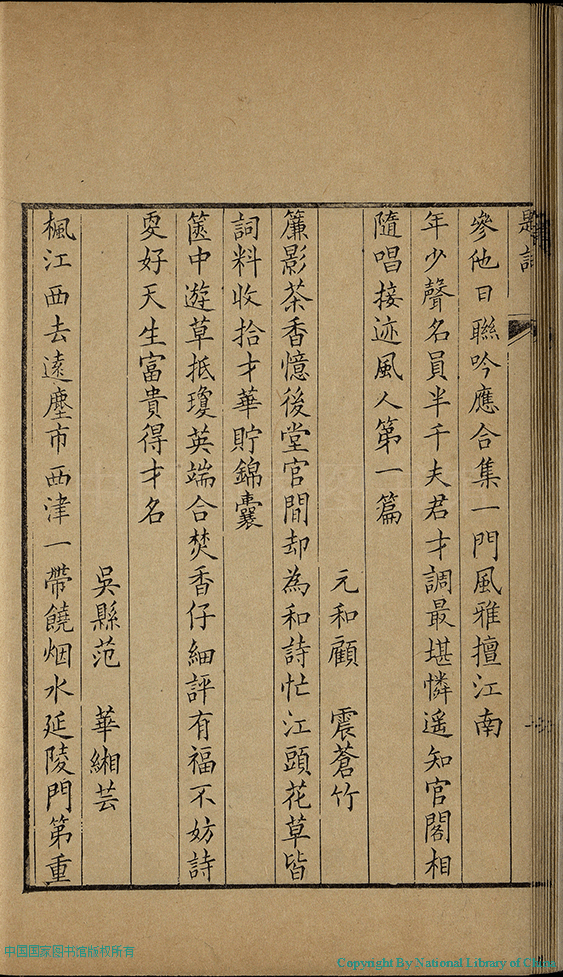 題詞
參他日聯吟應合集一門風雅擅江南
年少聲名員半千夫君才調最堪憐遥知官閣相
隨唱接迹風人第一篇
元和顧　震蒼竹
簾影茶香憶後堂官閒却為和詩忙江頭花草皆
詞料收拾才華貯錦囊
篋中遊草抵瓊英端合焚香仔細評有福不妨詩
㕛好天生富貴得才名
吳縣范　華緗芸
楓江西去遠塵市西津一帶饒烟水延陵門第重
中国国家图书馆版权所有
Copyright By National Library of China